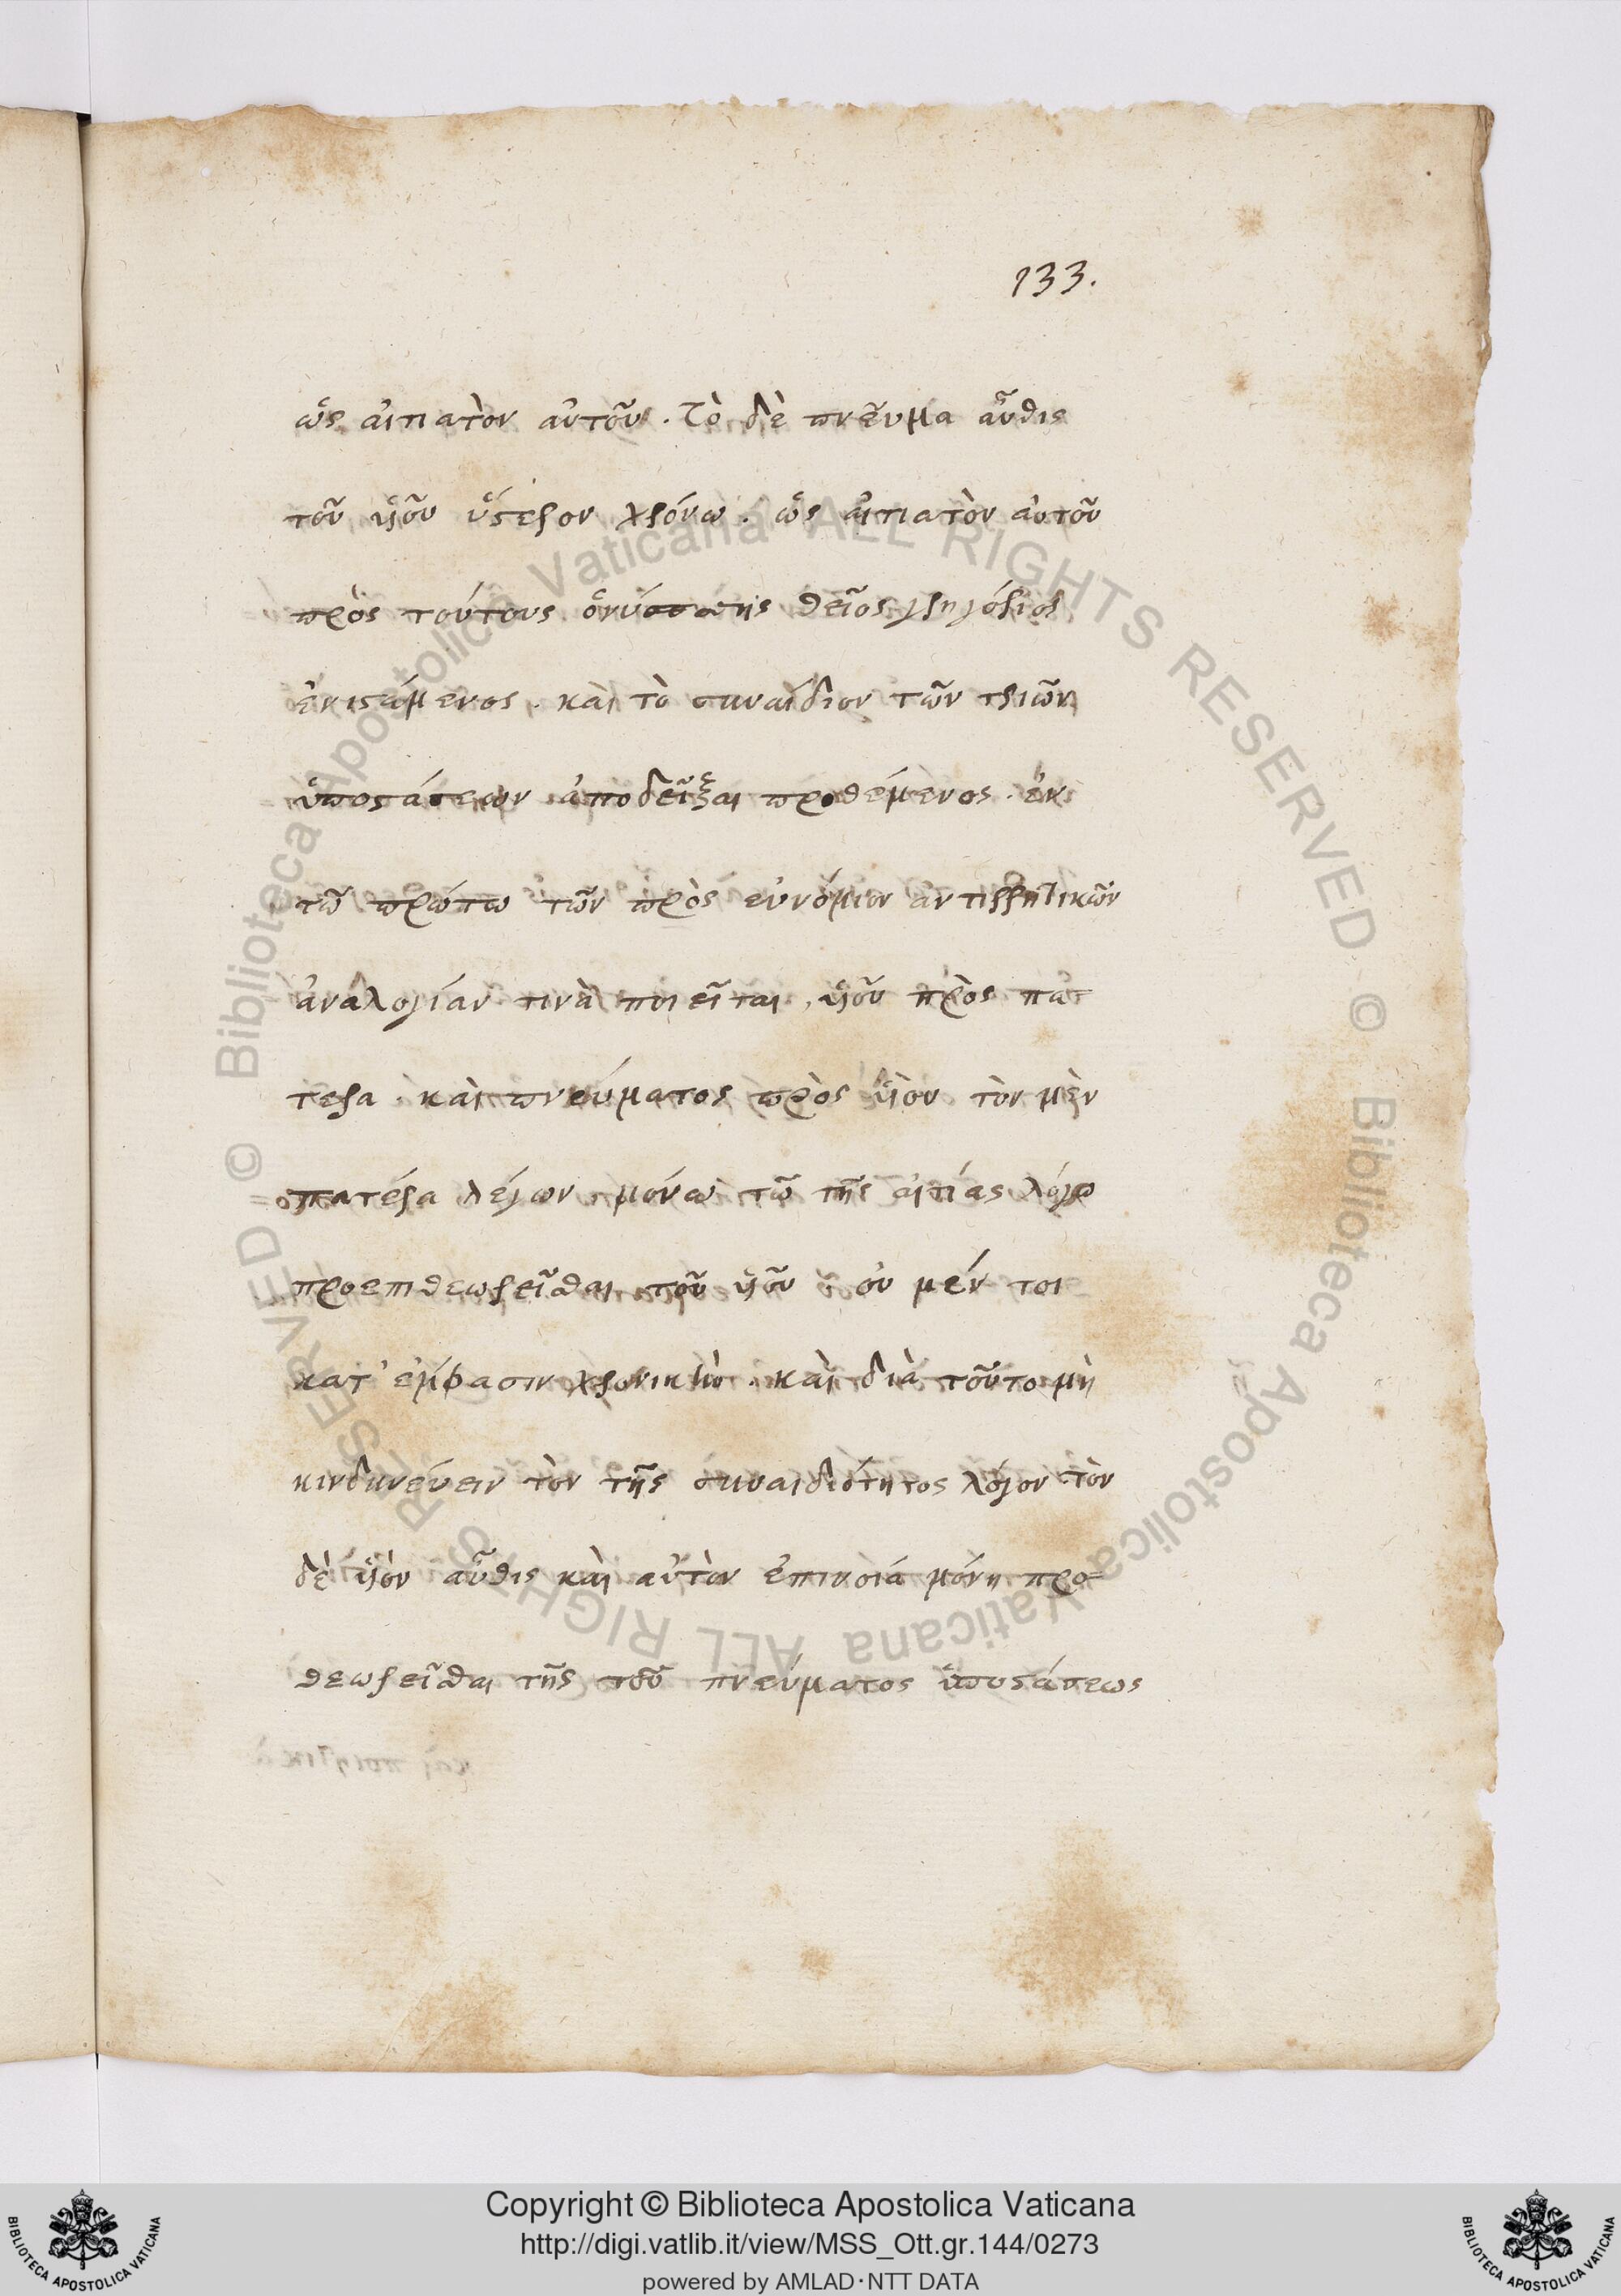 133.
ὡς αἰτιατὸν αὐτοῦ. Τὸ δὲ πνεῦμα αὖθις
τοῦ υἱοῦ ὕστερον χρόνω. ὡς αἰτιατὸν αὐτοῦ
πρὸς τούτους ὁ νύσσης θεῖος γρηγόριος
ἐνιστάμενος. καὶ τὸ συναΐδιον τῶν τριῶν
ὑποστάσεων ἀποδεῖξαι προθέμενος. ἐν
τῶ πρώτω τῶν πρὸς εὐνόμιον ἀντιρρητικῶν
ἀναλογίαν τινὰ ποιεῖται, υἱοῦ πρὸς πα
τερα. καὶ πνεύματος πρὸς υἱὸν τὸν μὲν
πατέρα λέγων μόνω τῶ τῆς αἰτίας λόγω
προεπιθεωρεῖσθαι τοῦ υἱοῦ οὐ μέν τοι
κατ' ἐμφασιν χρονικὴν. καὶ διὰ τοῦτο μὴ
κινδυνεύειν τὸν τῆς συναιδιότητος λόγον τὸν
δὲ υἱὸν αὖθις καὶ αὐτὸν ἐπινοία μόνη προ=
θεωρεῖσθαι τῆς τοῦ πνεύματος ὑποστάσεως
Copyright © Biblioteca Apostolica Vaticana
http://digi.vatlib.it/view/MSS_Ott.gr.144/0273
powered by AMLAD·NTT DATA
BIBLIOTECA APOSTOLICA VATICANA
BIBLIOTECA APOSTOLICA VATICANA
© Biblioteca Apostolica Vaticana ALL RIGHTS RESERVED © Biblioteca Apostolica Vaticana ALL RIGHTS RESERVED